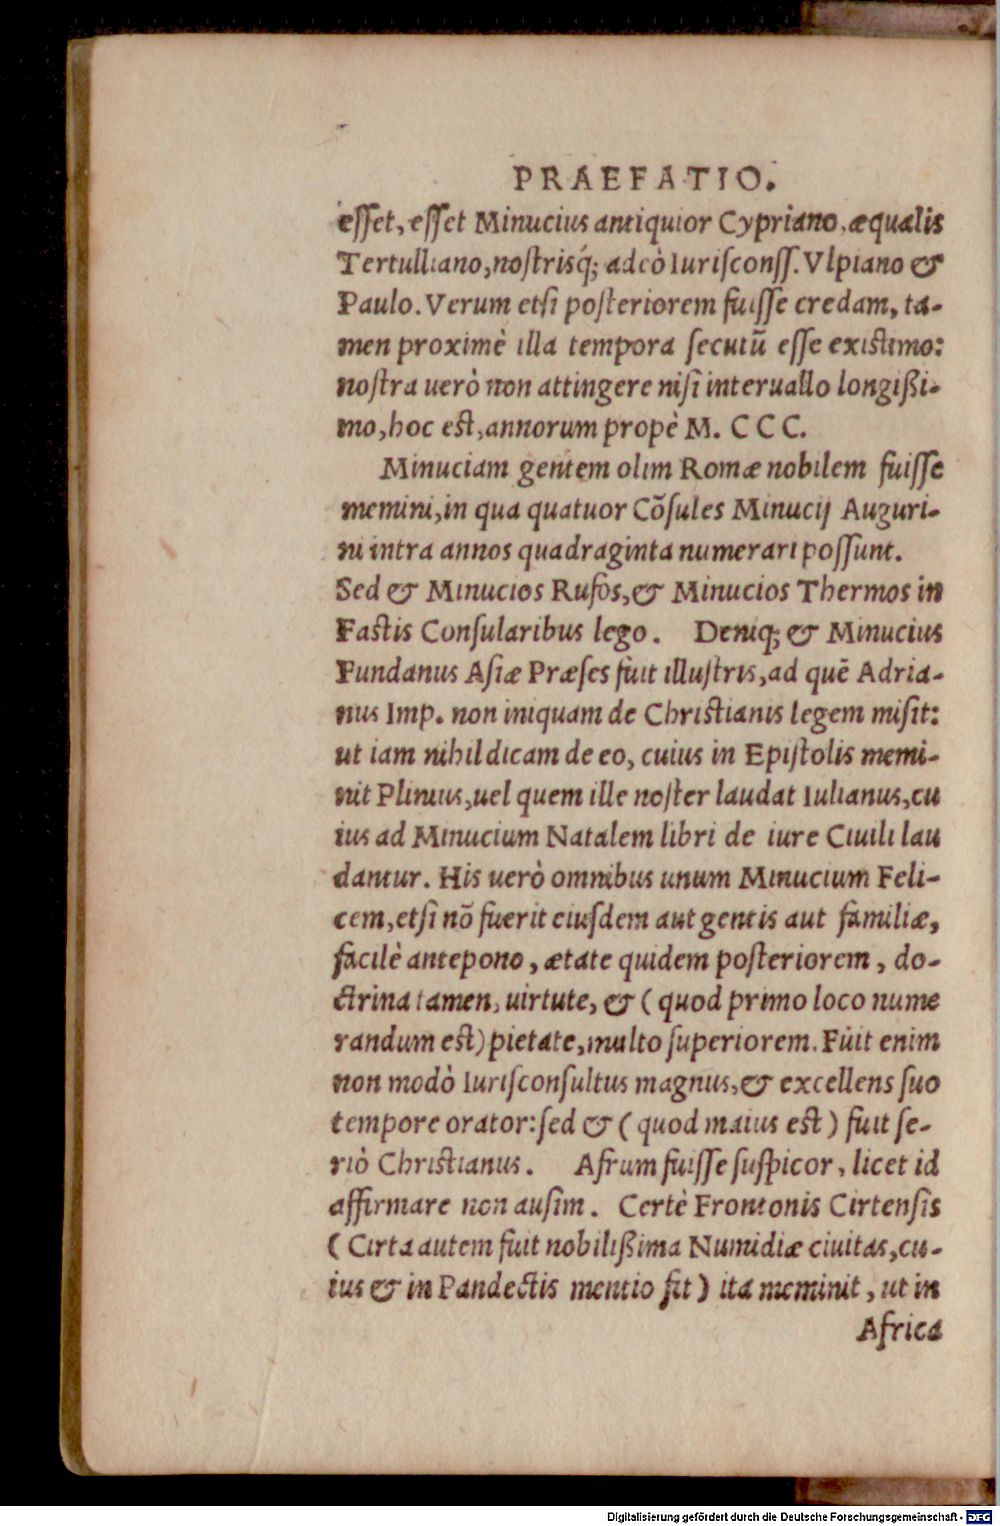 PRAEFATIO.
esset, esset Minucius antiquior Cypriano, æqualis
Tertulliano, nostrisq́; adeò Iurisconss. Vlpiano &
Paulo. Verum etsi posteriorem fuisse credam, ta-
men proximè illa tempora secutũ esse existimo:
nostra uerò non attingere nisi interuallo longißi-
mo, hoc est, annorum propè M. CCC.
Minuciam gentem olim Romæ nobilem fuisse
memini, in qua quatuor Cõsules Minucij Auguri-
ni intra annos quadraginta numerari possunt.
Sed & Minucios Rufos, & Minucios Thermos in
Fastis Consularibus lego. Deniq; & Minucius
Fundanus Asiæ Præses fuit illustris, ad quẽ Adria-
nus Imp. non iniquam de Christianis legem misit:
ut iam nihil dicam de eo, cuius in Epistolis memi-
nit Plinius, uel quem ille noster laudat Iulianus, cu
ius ad Minucium Natalem libri de iure Ciuili lau
dantur. His uerò omnibus unum Minucium Feli-
cem, etsi nõ fuerit eiusdem aut gentis aut familiæ,
facilè antepono, ætate quidem posteriorem, do-
ctrina tamen, uirtute, & (quod primo loco nume
randum est) pietate, multo superiorem. Fuit enim
non modò Iurisconsultus magnus, & excellens suo
tempore orator: sed & (quod maius est) fuit se-
riò Christianus. Afrum fuisse suspicor, licet id
affirmare non ausim. Certè Frontonis Cirtensis
(Cirta autem fuit nobilißima Numidiæ ciuitas, cu-
ius & in Pandectis mentio fit) ita meminit, ut in
Africa
Digitalisierung gefördert durch die Deutsche Forschungsgemeinschaft - DFG